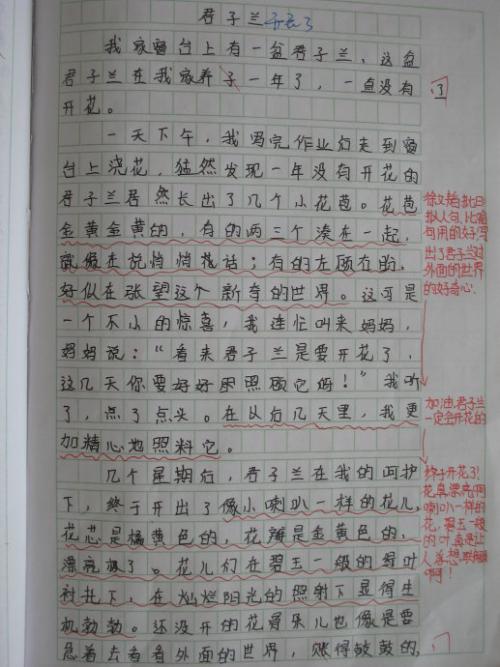 君子兰开花了
我家窗台上有一盆君子兰,这盆
君子兰在我家养子一年了,一直没有
了
开花。
一天下午,我写完作业后走到窗
台上浇花,猛然发现一年没有开花的
君子兰居然长出了几个小花苞。花苞
金黄金黄的,有的两三个凑在一起,
就像在说悄悄话;有的左顾右盼,
好似在张望这个新奇的世界。这可是
一个不小的惊喜,我连忙叫来妈妈,
妈妈说:“看来君子兰是要开花了,
这几天你要好好照顾它呀!”我听
了,点了点头。在以后几天里,我更
加精心地照料它。
几个星期后,君子兰在我的呵护
下,终于开出了像小喇叭一样的花儿,
花芯是橘黄色的,花瓣是金黄色的,
漂亮极了。花儿们在碧玉一般的绿叶
衬托下,在灿烂阳光的照射下显得生
机勃勃。还没开的花骨朵儿也像是要
急着去看看外面的世界,胀得鼓鼓的,
拟人句,比喻
句用的好,写
出了君子兰对
外面的世界
的好奇心
加油,君子兰
一定会开花的
终于开花了!
喇叭一样的
花,碧玉一般
的叶